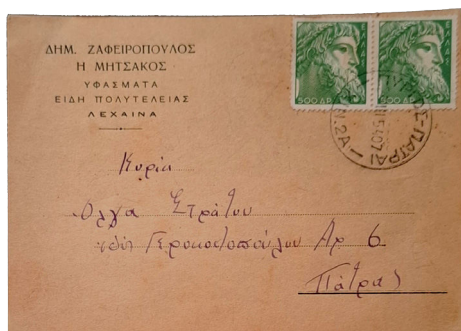 ΔΗΜ. ΖΑΦΕΙΡΟΠΟΥΛΟΣ
Η ΜΗΤΣΑΚΟΣ
ΥΦΑΣΜΑΤΑ
ΕΙΔΗ ΠΟΛΥΤΕΛΕΙΑΣ
ΛΕΧΑΙΝΑ
500 ΔΡ
500 ΔΡ
ΠΥΡΓΟΣ-ΠΑΤΡΑΙ
Κυρία
Όλγα Στράτου
Γεροκωστοπούλου Αρ 6
Πάτρας